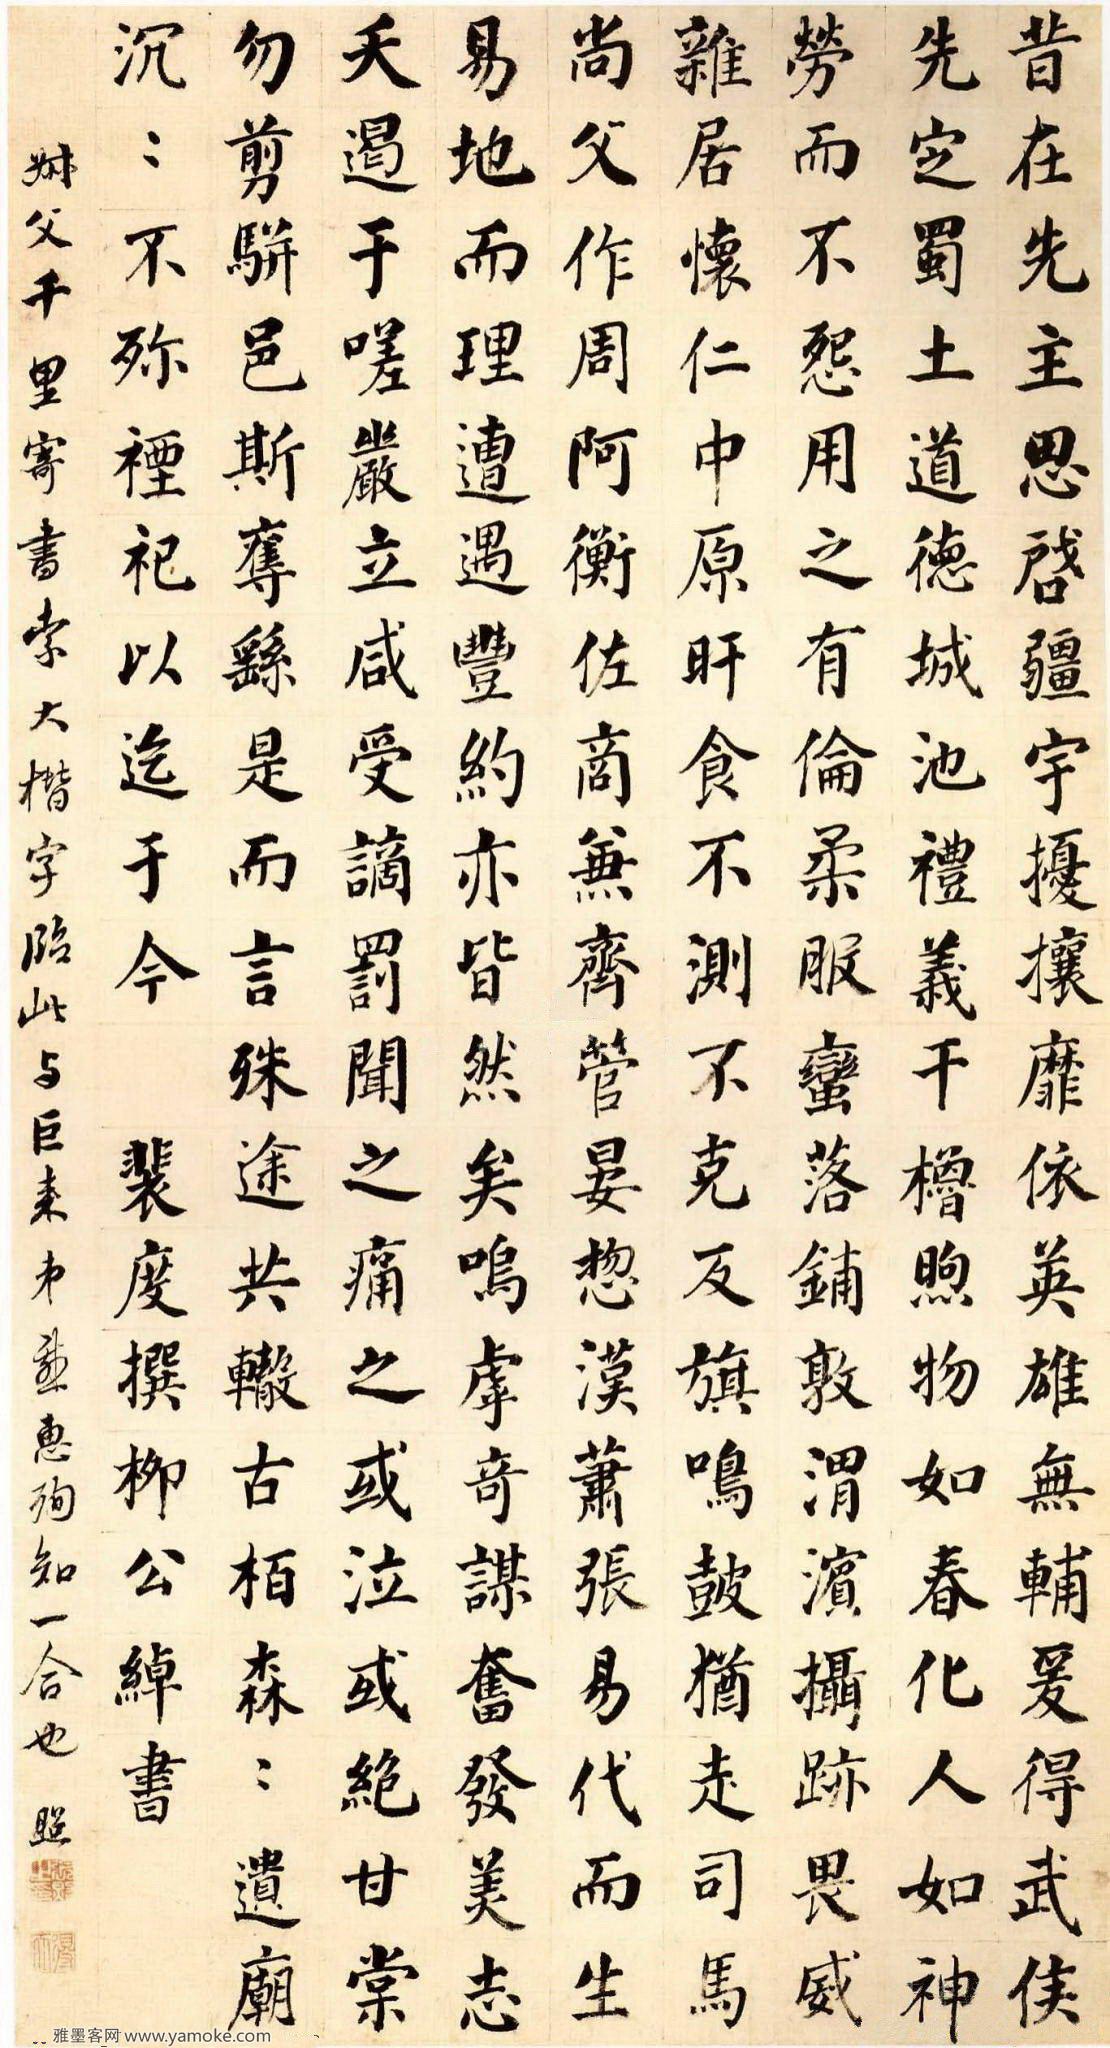 昔在先主思啓疆宇擾攘靡依英雄無輔爰得武侯
先定蜀土道德城池禮義干櫓煦物如春化人如神
勞而不怨用之有倫柔服蠻落鋪敦渭濱攝跡畏威
雜居懷仁中原旰食不測不克反旗鳴鼓猶走司馬
尚父作周阿衡佐商兼齊管晏惣漢蕭張易代而生
易地而理遭遇豐約亦皆然矣嗚虖奇謀奮發美志
夭遏于嗟嚴立咸受謫罰聞之痛之或泣或絕甘棠
勿剪駢邑斯奪繇是而言殊途共轍古栢森〻遺廟
沉〻不殄禋祀以迄于今 裴度撰柳公綽書
叔父千里寄書索大楷字臨此与巨來弟並惠殉知一合也 照
雅墨客网 www.yamoke.com